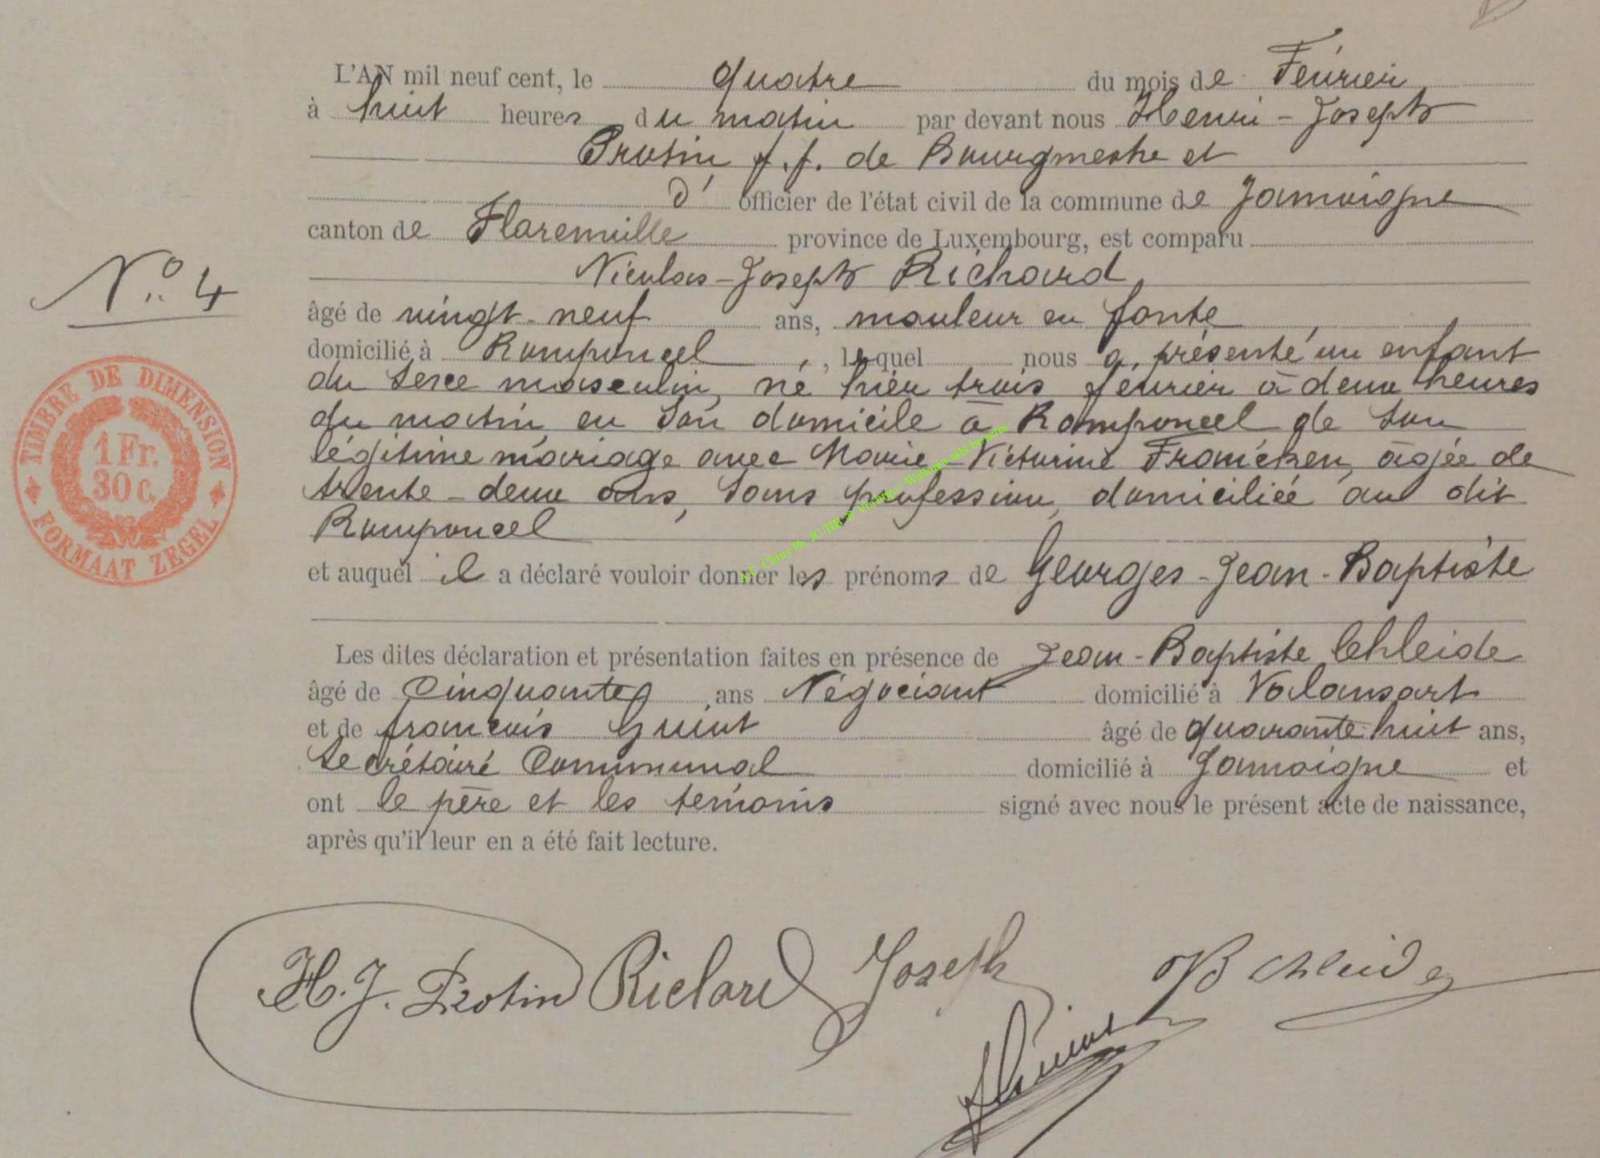 L'AN mil neuf cent, le quatre du mois de Février
à huit heures du matin par devant nous Henri-Joseph
Protin f.f. de Bourgmestre et
d' officier de l'état civil de la commune de Jamoigne
canton de Florenville province de Luxembourg, est comparu
Nicolas-Joseph Richard
N° 4
âgé de vingt-neuf ans, mouleur en fonte
domicilié à Romponcel, lequel nous a présenté un enfant
du sexe masculin, né hier trois février à deux heures
du matin en son domicile à Romponcel de son
légitime mariage avec Marie-Victorine Francken, âgée de
trente-deux ans, sans profession, domiciliée au dit
Romponcel
et auquel il a déclaré vouloir donner les prénoms de Georges-Jean-Baptiste
TIMBRE DE DIMENSION
1 Fr.
30 c.
FORMAAT ZEGEL
Les dites déclaration et présentation faites en présence de Jean-Baptiste Chleide
âgé de Cinquante ans Négociant domicilié à Valansart
et de françois Guiot âgé de quarante-huit ans,
Secrétaire Communal domicilié à Jamoigne et
ont le père et les témoins signé avec nous le présent acte de naissance,
après qu'il leur en a été fait lecture.
H. J. Protin Richard Joseph JB Chleide